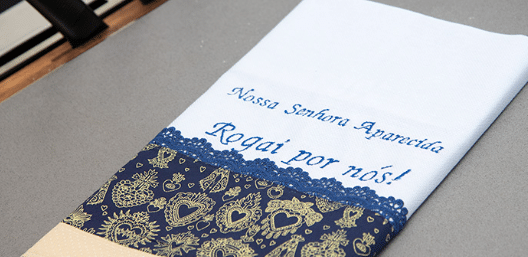 Nossa Senhora Aparecida
Rogai por nós!